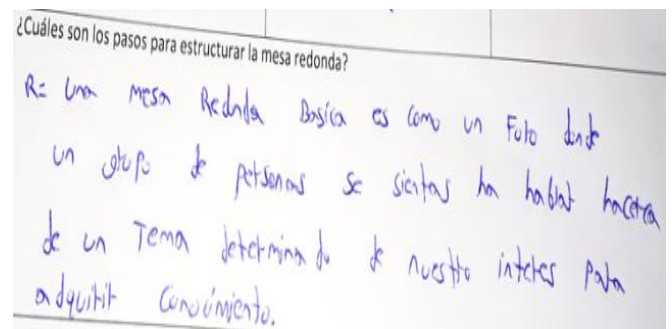 ¿Cuáles son los pasos para estructurar la mesa redonda?
R= Una mesa Redonda Basica es como un Foro donde
un grupo de personas se sientas ha hablar hacerca
de un Tema determinado de nuestro interes para
adquirir conocimiento.